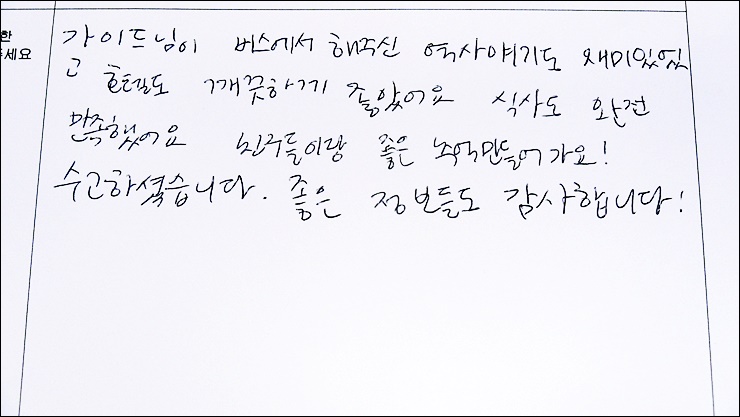 한
주세요
가이드님이 버스에서 해주신 역사얘기도 재미있었
고 호텔도 깨끗하기 좋았어요 식사도 완전
만족했어요 친구들이랑 좋은 추억만들어가요!
수고하셨습니다. 좋은 정보들도 감사합니다!